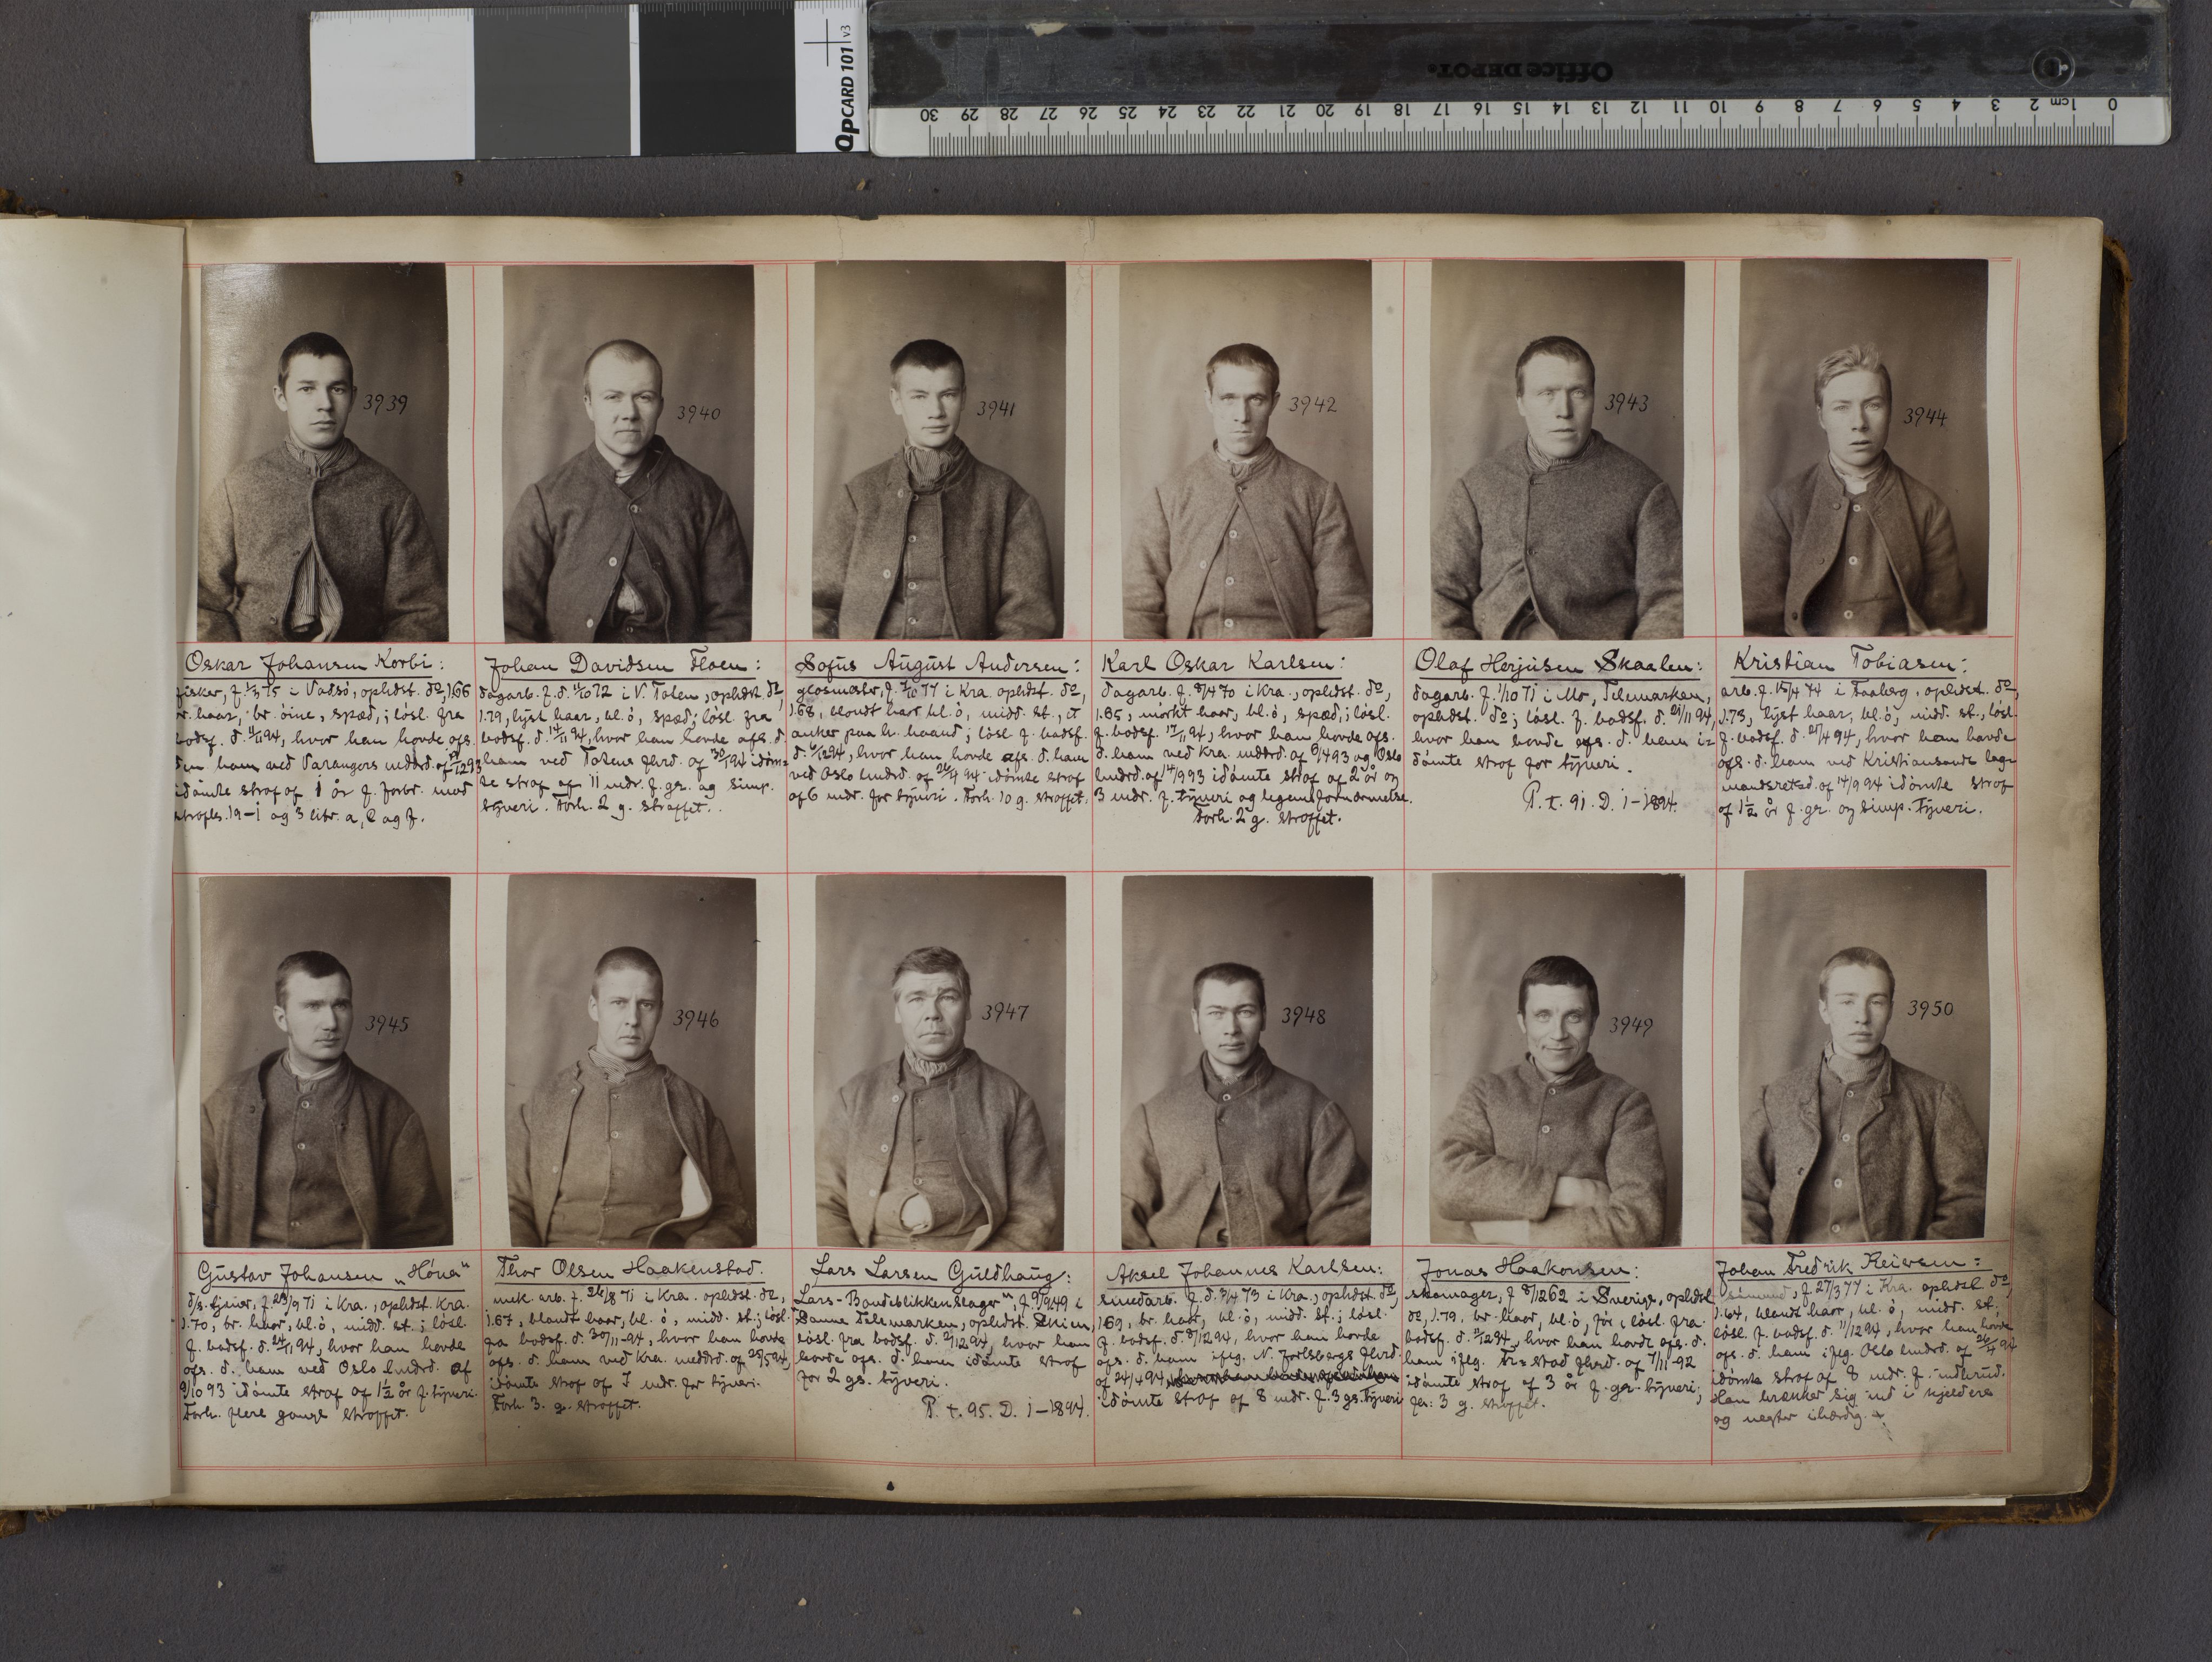 QPCARD 101 v3
Office DEPOT.
0 1cm 2 3 4 5 6 7 8 9 10 11 12 13 14 15 16 17 18 19 20 21 22 23 24 25 26 27 28 29 30
3939
3940
3941
3942
3943
3944
Oskar Johansen Korbi:
fisker, f. 1/3 75 i Vadsö, opholdst. do, 1.66
br. haar, br. öine, spæd; lösl. fra
bodsf. d. 11/11 94, hvor han havde afs.
den ham ved Varangers meddrd. af
idömte straf af 1 år f. forbr. mod
straffes. 19-1 og 3 litr. a, e og f.
Johan Davidsen Floen:
dagarb. f. d. 1/10 72 i V. Toten, opholdst. do,
1.79, lyst haar, bl. ö, spæd; lösl. fra
bodsf. d. 14/11 94, hvor han havde afs. d.
ham ved Totens xhrd. af 30/1 94 idöm-
te straf af 11 mdr. f. gr. og simp.
tyveri. Forh. 2 g. straffet.
Sofus August Andersen:
glasmester, f. 7/10 77 i Kra. opholdst. do,
1.68, blondt haar bl. ö, midd. st., et
anker paa h. haand; lösl. f. bodsf.
d. 4/12 94, hvor han havde afs. d. ham
ved Oslo mdrd. af 26/4 94 idömte straf
af 6 mdr. for tyveri. Forh. 10 g. straffet.
Karl Oskar Karlsen:
dagarb. f. 8/4 70 i Kra., opholdst. do,
1.65, mörkt haar, bl. ö, spæd; lösl.
f. bodsf. 17/11 94, hvor han havde afs.
d. ham ved Kra. meddrd. af 6/4 93 og Oslo
mdrd. af 14/9 93 idömte straf af 2 år og
3 mdr. f. tyveri og legemsfornærmelse.
Forh. 2 g. straffet.
Olaf Herjusen Skaalen:
dagarb. f. 1/10 71 i Mo, Telemarken,
opholdst. do; lösl. f. bodsf. d. 21/11 94,
hvor han havde afs. d. ham i-
dömte straf for tyveri.
P. t. 91. D. 1-1894.
Kristian Tobiasen:
arb. f. 15/4 74 i Faaberg, opholdst. do,
1.73, lyst haar, bl. ö, midd. st., lösl.
f. bodsf. d. 21/4 94, hvor han havde
afs. d. ham ved Kristiansands lag-
mandsretsd. af 14/9 94 idömte straf
af 1 1/2 år f. gr. og simp. tyveri.
3945
3946
3947
3948
3949
3950
Gustav Johansen „Höna"
d/s. tjener, f. 23/9 71 i Kra., opholdst. Kra.
1.70, br. haar, bl. ö, midd. st; lösl.
f. bodsf. d. 24/11 94, hvor han havde
afs. d. ham ved Oslo mdrd. af
9/10 93 idömte straf af 1 1/2 år f. tyveri.
Forh. flere gange straffet.
Thor Olsen Haakenstad.
mek. arb. f. 26/8 71 i Kra. opholdst. do,
1.67, blondt haar, bl. ö, midd. st; lösl.
fra bodsf. d. 30/11-94, hvor han havde
afs. d. ham ved Kra. meddrd. af 25/5 94
idömte straf af 7 mdr. for tyveri.
Forh. 3. g. straffet.
Lars Larsen Guldhaug:
Lars-Bandeblikkenslager", f. 9/9 49 i
Sanne Telemarken, opholdst. Skien,
lösl. fra bodsf. d. 2/12 94, hvor han
havde afs. d. ham idömte straf
for 2 gs. tyveri.
P. t. 95. D. 1-1894.
Aksel Johannes Karlsen:
smedarb. f. d. 3/4 73 i Kra., opholdst. do,
1.69, br. haar, bl. ö, midd. st.; lösl.
f. bodsf. d. 8/12 94, hvor han havde
afs. d. ham iflg. N. Jarlsbergs xhrd.
af 24/4 94
idömte straf af 8 mdr. f. 3 gs. tyveri
Jonas Haakonsen:
skomager, f. 8/12 62 i Sverige, opholdst
do, 1.79, br. haar, bl. ö, för; lösl. fra
bodsf. d. 2/12 94, hvor han havde afs. d.
ham iflg. Fr-stad xhrd. af 7/11-92
idömte straf af 3 år f. gr. tyveri;
för: 3 g. straffet.
Johan Fredrik Reiersen:
sömand, f. 27/3 77 i Kra. opholdst do,
1.64, blondt haar, bl. ö, midd. st.,
lösl. f. bodsf. d. 11/12 94, hvor han havde
afs. d. ham iflg. Oslo mdrd. af 26/4 94
idömte straf af 8 mdr. f. indbrud.
Han brækker sig ind i kjeldere
og negter ihærdig.